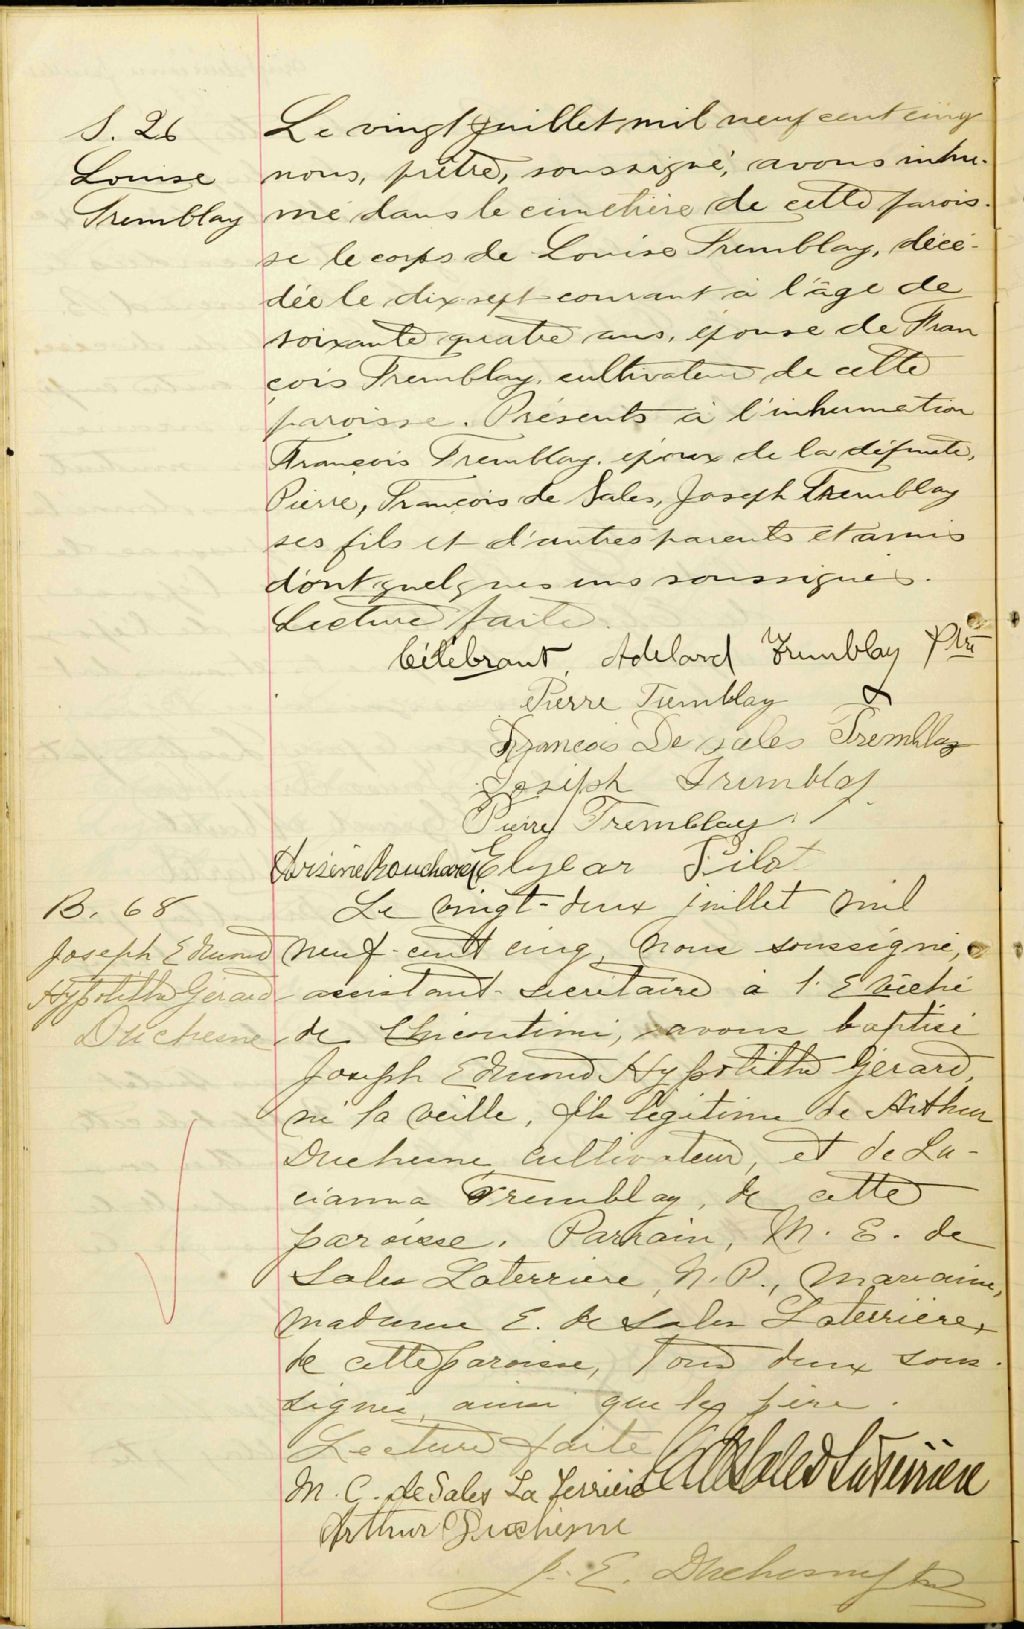 S. 26
Louise
Tremblay
Le vingt juillet mil neuf cent cinq
nous, prêtre, soussigné, avons inhu-
mé dans le cimetière de cette parois-
se le corps de Louise Tremblay, décé-
dée le dix-sept courant à l'âge de
soixante quatre ans, épouse de Fran
çois Tremblay, cultivateur de cette
paroisse. Présents à l'inhumation
François Tremblay, époux de la défunte,
Pierre, François de Sales, Joseph Tremblay
ses fils et d'autres parents et amis
dont quelques uns soussignés.
Lecture faite.
Célébrant, Adelard Tremblay Ptre
Pierre Tremblay
François De Sales Tremblay
Joseph Tremblay
Pierre Tremblay
Arsène Bouchard Elzear Pilot
B. 68
Joseph Edmond
Hypolithe Gerard
Duchesne
Le vingt-deux juillet mil
neuf-cent cinq, nous soussigné,
assistant-secrétaire à l'Evêché
de Chicoutimi, avons baptisé
Joseph Edmond Hypolithe Gérard,
né la veille, fils légitime de Arthur
Duchesne, cultivateur, et de Lu-
cianna Tremblay, de cette
paroisse. Parrain, M. E. de
Sales Laterrière, N. P., marraine,
madame E. de Sales Laterrière,
de cette paroisse, tous deux sous-
signés, ainsi que le père.
Lecture faite
de Sales LaTerrière
M. C. de Sales La Terrière
Arthur Duchesne
J. E. Duchesne ptre